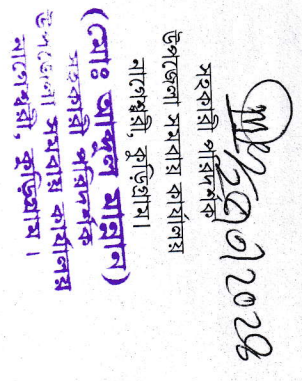 সহকারী পরিদর্শক
উপজেলা সমবায় কার্যালয়
নাগেশ্বরী, কুড়িগ্রাম।
(মোঃ আব্দুল মান্নান)
সহকারী পরিদর্শক
উপজেলা সমবায় কার্যালয়
নাগেশ্বরী, কুড়িগ্রাম।